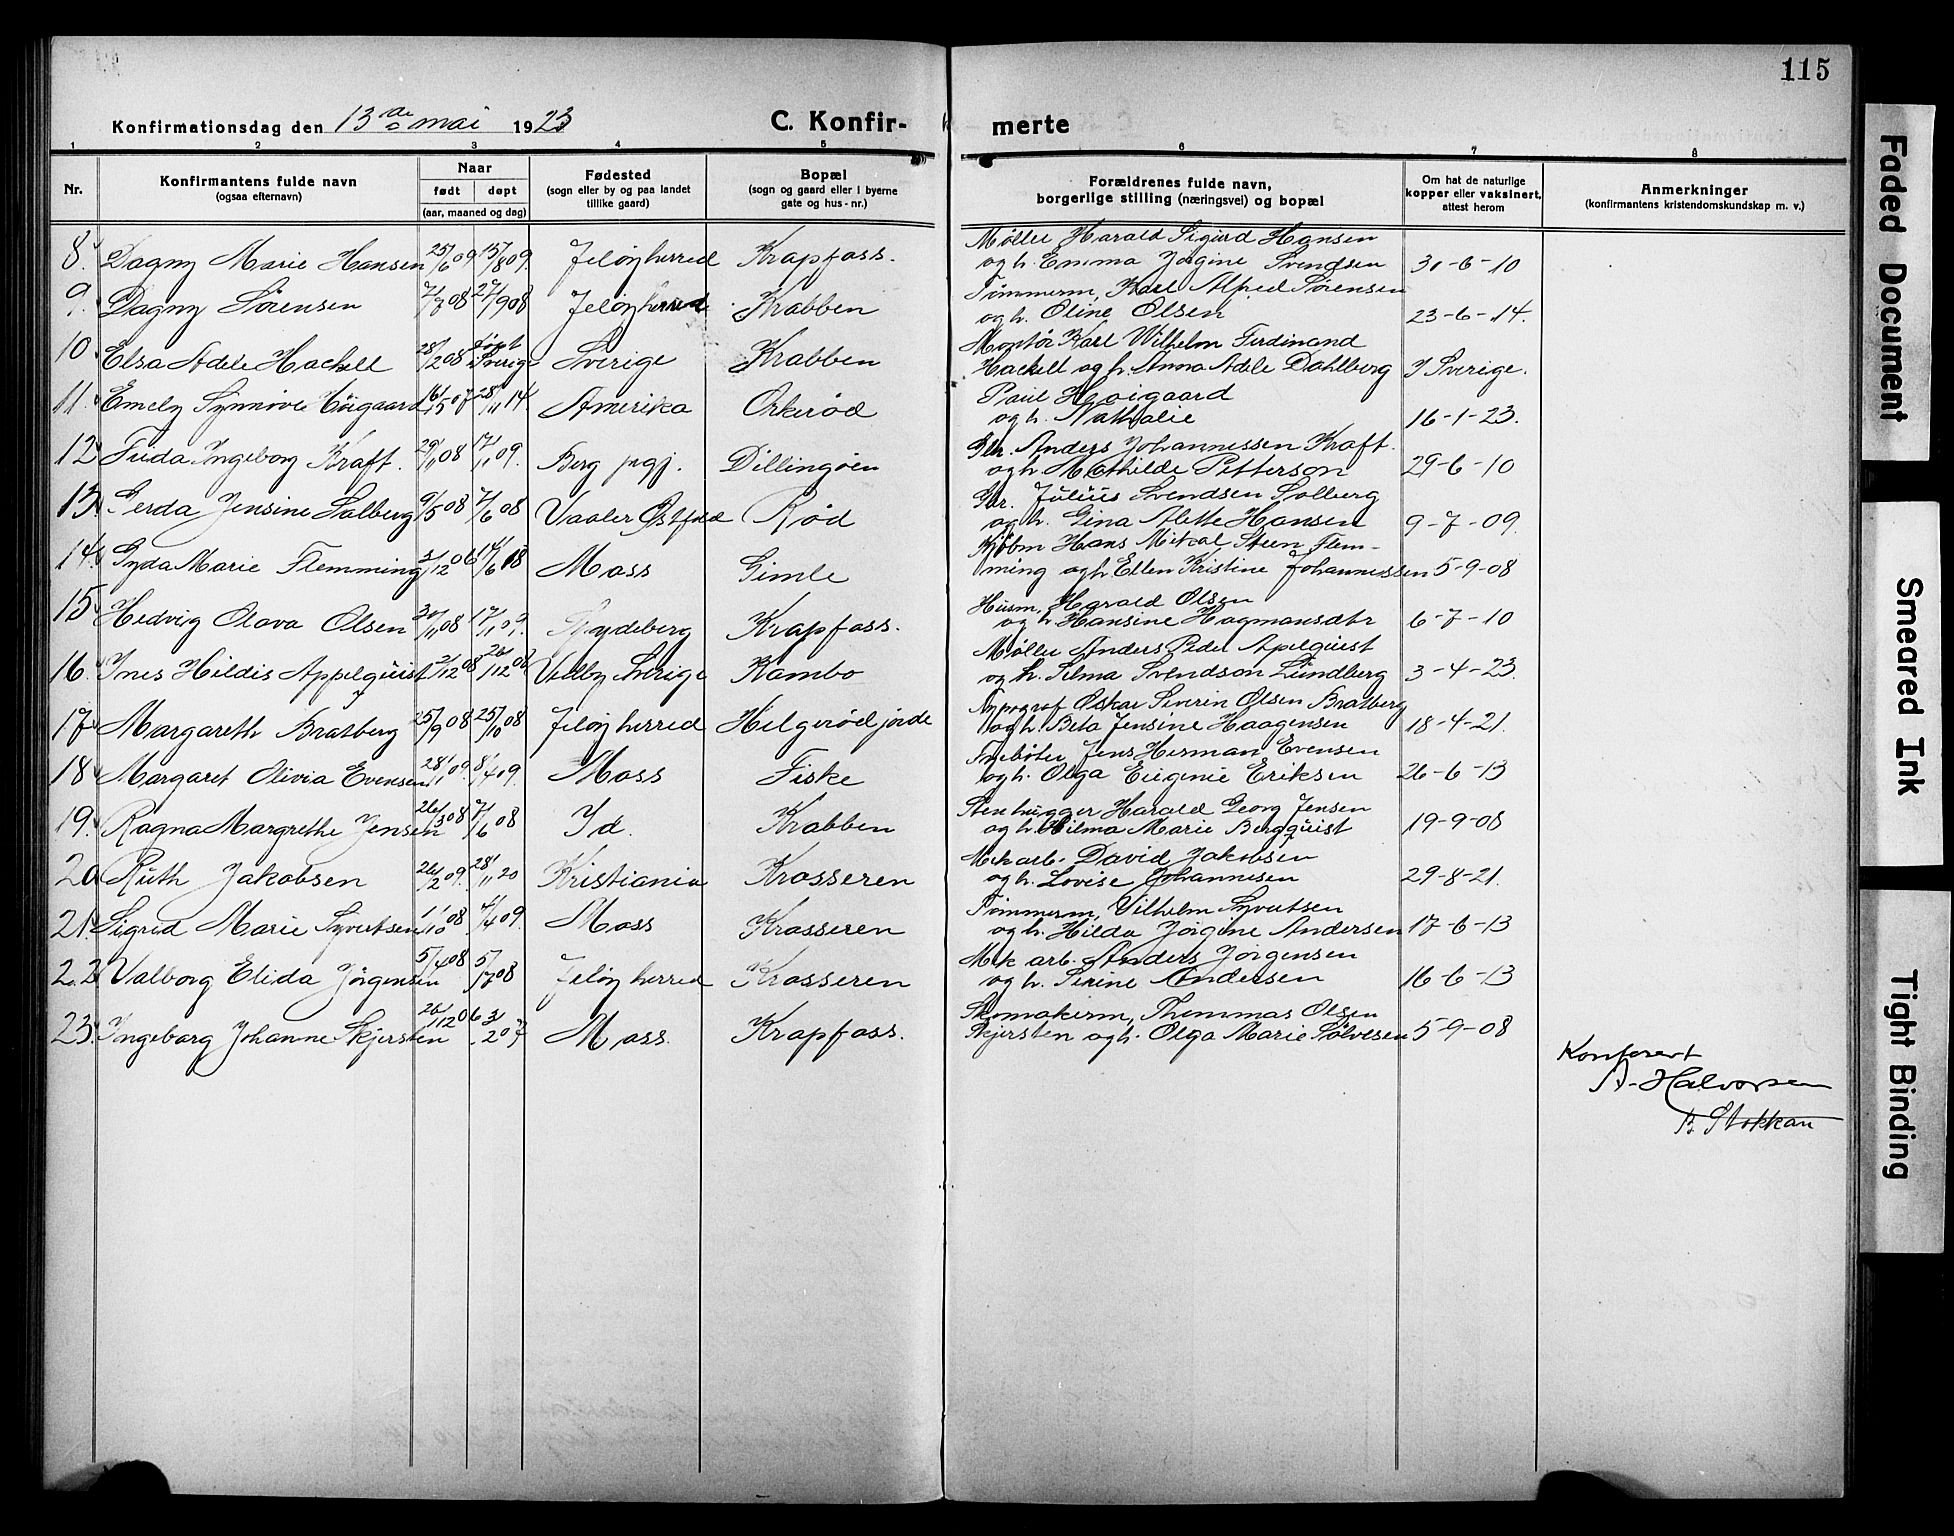 115
Konfirmationsdag den 13de mai 1923
C. Konfir- merte
1 2 3 4 5 6 7 8
Nr.
Konfirmantens fulde navn
(ogsaa efternavn)
Naar
født døpt
(aar, maaned og dag)
Fødested
(sogn eller by og paa landet
tillike gaard)
Bopæl
(sogn og gaard eller i byerne
gate og hus-nr.)
Forældrenes fulde navn,
borgerlige stilling (næringsvei) og bopæl
Om hat de naturlige
kopper eller vaksinert,
attest herom
Anmerkninger
(konfirmantens kristendomskundskap m. v.)
Møller Harald Sigurd Hansen
8. Dagny Marie Hansen 25/6 09 15/8 09. Jeløy herred Krapfoss. og h. Emma Jørgine Svendsen 30-6-10
Tømmerm. Karl Alfred Sørensen
9. Dagny Sørensen 7/7 08 27/9 08 Jeløy herred Krabben og h. Oline Olsen 23-6-14.
Montør Karl Wilhelm Ferdinand
10 Elsa Adele Hackell 28/2 08 døpt Sverige Sverige Krabben Hackell og h. Anna Adele Dahlberg I Sverige.
Paul Høigaard
11. Emely Synnøve Høigaard 16/5 07 28/11 14 Amerika Orkerød og h. Nathalie 16-1-23.
Anders Johannessen Kraft
12 Frida Ingeborg Kraft. 29/11 08 17/1 09. Berg pgj. Dillingøen og h. Mathilde Petterson 29-6-10
Julius Svendsen Solberg
13. Gerda Jensine Solberg 9/5 08 7/6 08 Vaaler Østfold Rød og h. Gina Alette Hansen 9-7-09.
Kjøbm Hans Mikal Steen Flem-
14. Gyda Marie Flemming 3/12 06 14/6 08 Moss Gimle ming og h Ellen Kristine Johannessen 5-9-08
Husm. Harald Olsen
15 Hedvig Olava Olsen 30/11 08 17/1 09. Spydeberg Krapfoss. og h Hansine Hagmansdtr 6-7-10
Møller Anders Peder Apelquist
16. Ines Hildis Appelquist 2/12 08 26/12 08 Velby Sverige Kambo og h. Selma Svendson Lundberg 3-4-23.
Typograf Oskar Severin Olsen Bratberg
17 Margareth Bratberg 25/9 08 25/10 08 Jeløy herred Helgerød jorde og h. Beta Jensine Haagensen 18-4-21.
Fyrbøter Jens Herman Evensen
18 Margaret Olivia Evensen 28/1 09. 8/4 09. Moss Fiske og h. Olga Eugenie Eriksen 26-6-13
Stenhugger Harald Georg Jensen
19. Ragna Margrethe Jensen 26/3 08 7/6 08 Id. Krabben og h. Hilma Marie Bergquist 19-9-08
Mek arb. David Jakobsen
20 Ruth Jakobsen 26/2 09. 28/11 20 Kristiania Krosseren og h. Lovise Johannesen 29-8-21.
Tømmerm, Vilhelm Syvertsen
21. Sigrid Marie Syvertsen 1/10 08 4/4 09. Moss Krosseren og h. Hilda Jørgine Andersen 17-6-13
Mek arb. Anders Jørgensen
22 Valborg Elida Jørgensen 5/4 08 5/7 08 Jeløy herred Krosseren og h. Serine Andersen 16-6-13
Skomakerm, Thommas Olsen
23. Ingeborg Johanne Skjersten 26/12 06 3/2 07 Moss. Krapfoss. Skjersten og h. Olga Marie Sølvesen 5-9-08
Konferert
A. Halvorsen
B. Stokkan
Faded Document
Smeared Ink
Tight Binding